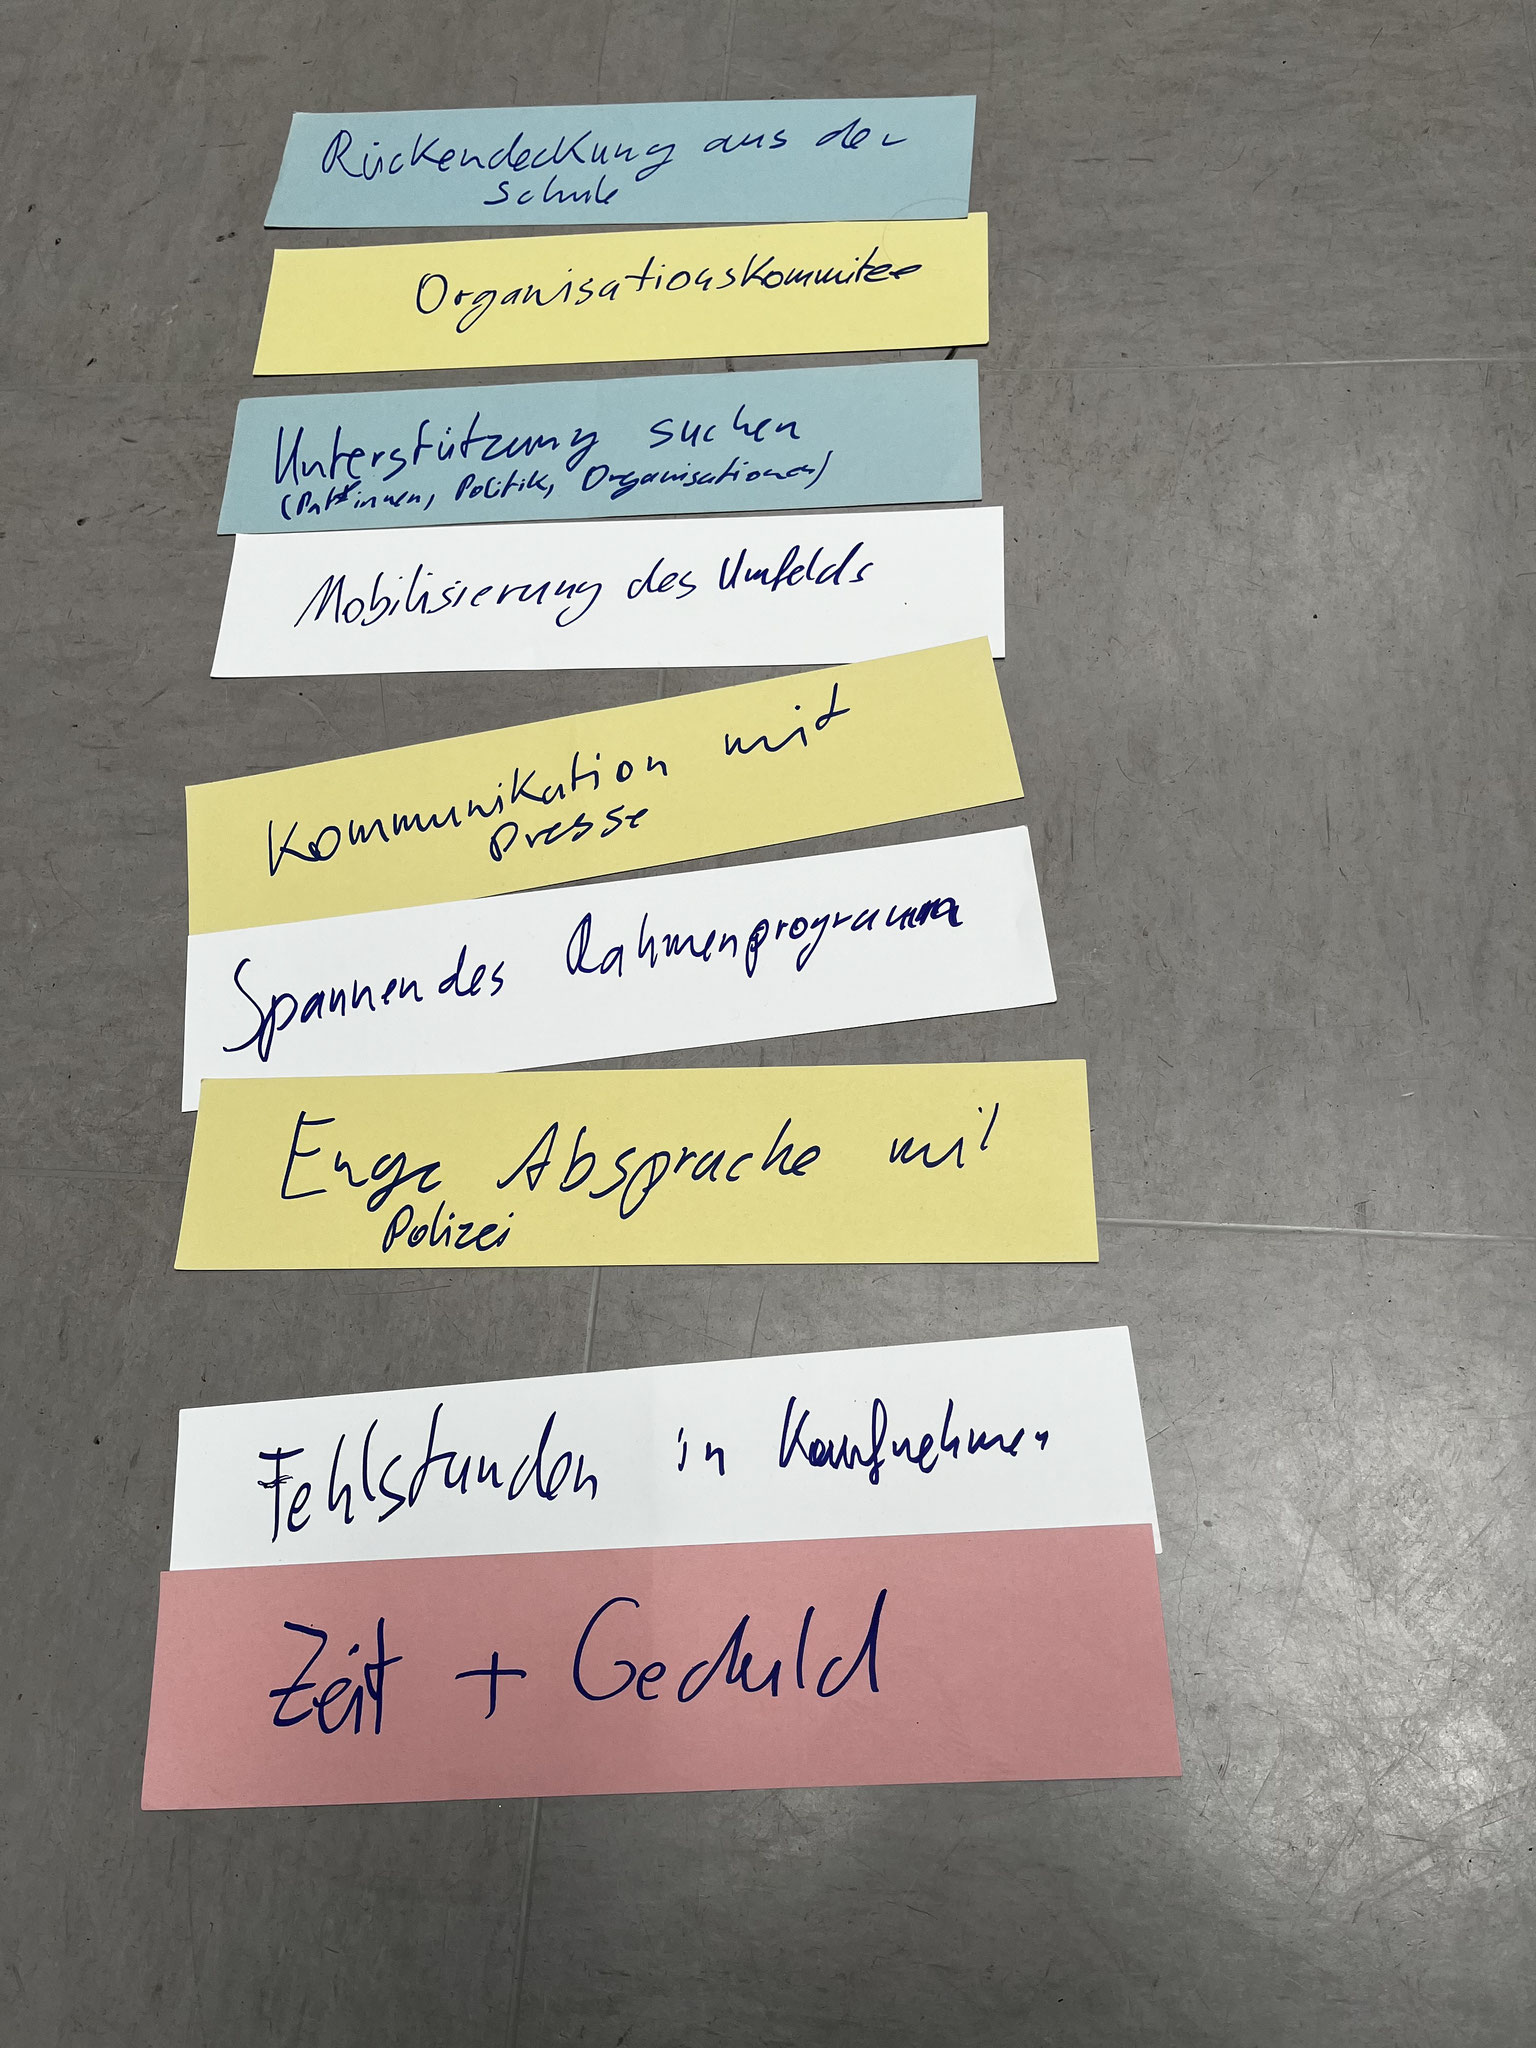 Rückendeckung aus der
Schule
Organisationskommitee
Unterstützung suchen
(Pat*innen, Politik, Organisationen)
Mobilisierung des Umfelds
Kommunikation mit
Presse
Spannendes Rahmenprogramm
Enge Absprache mit
Polizei
Fehlstunden in Kaufnehmen
Zeit + Geduld